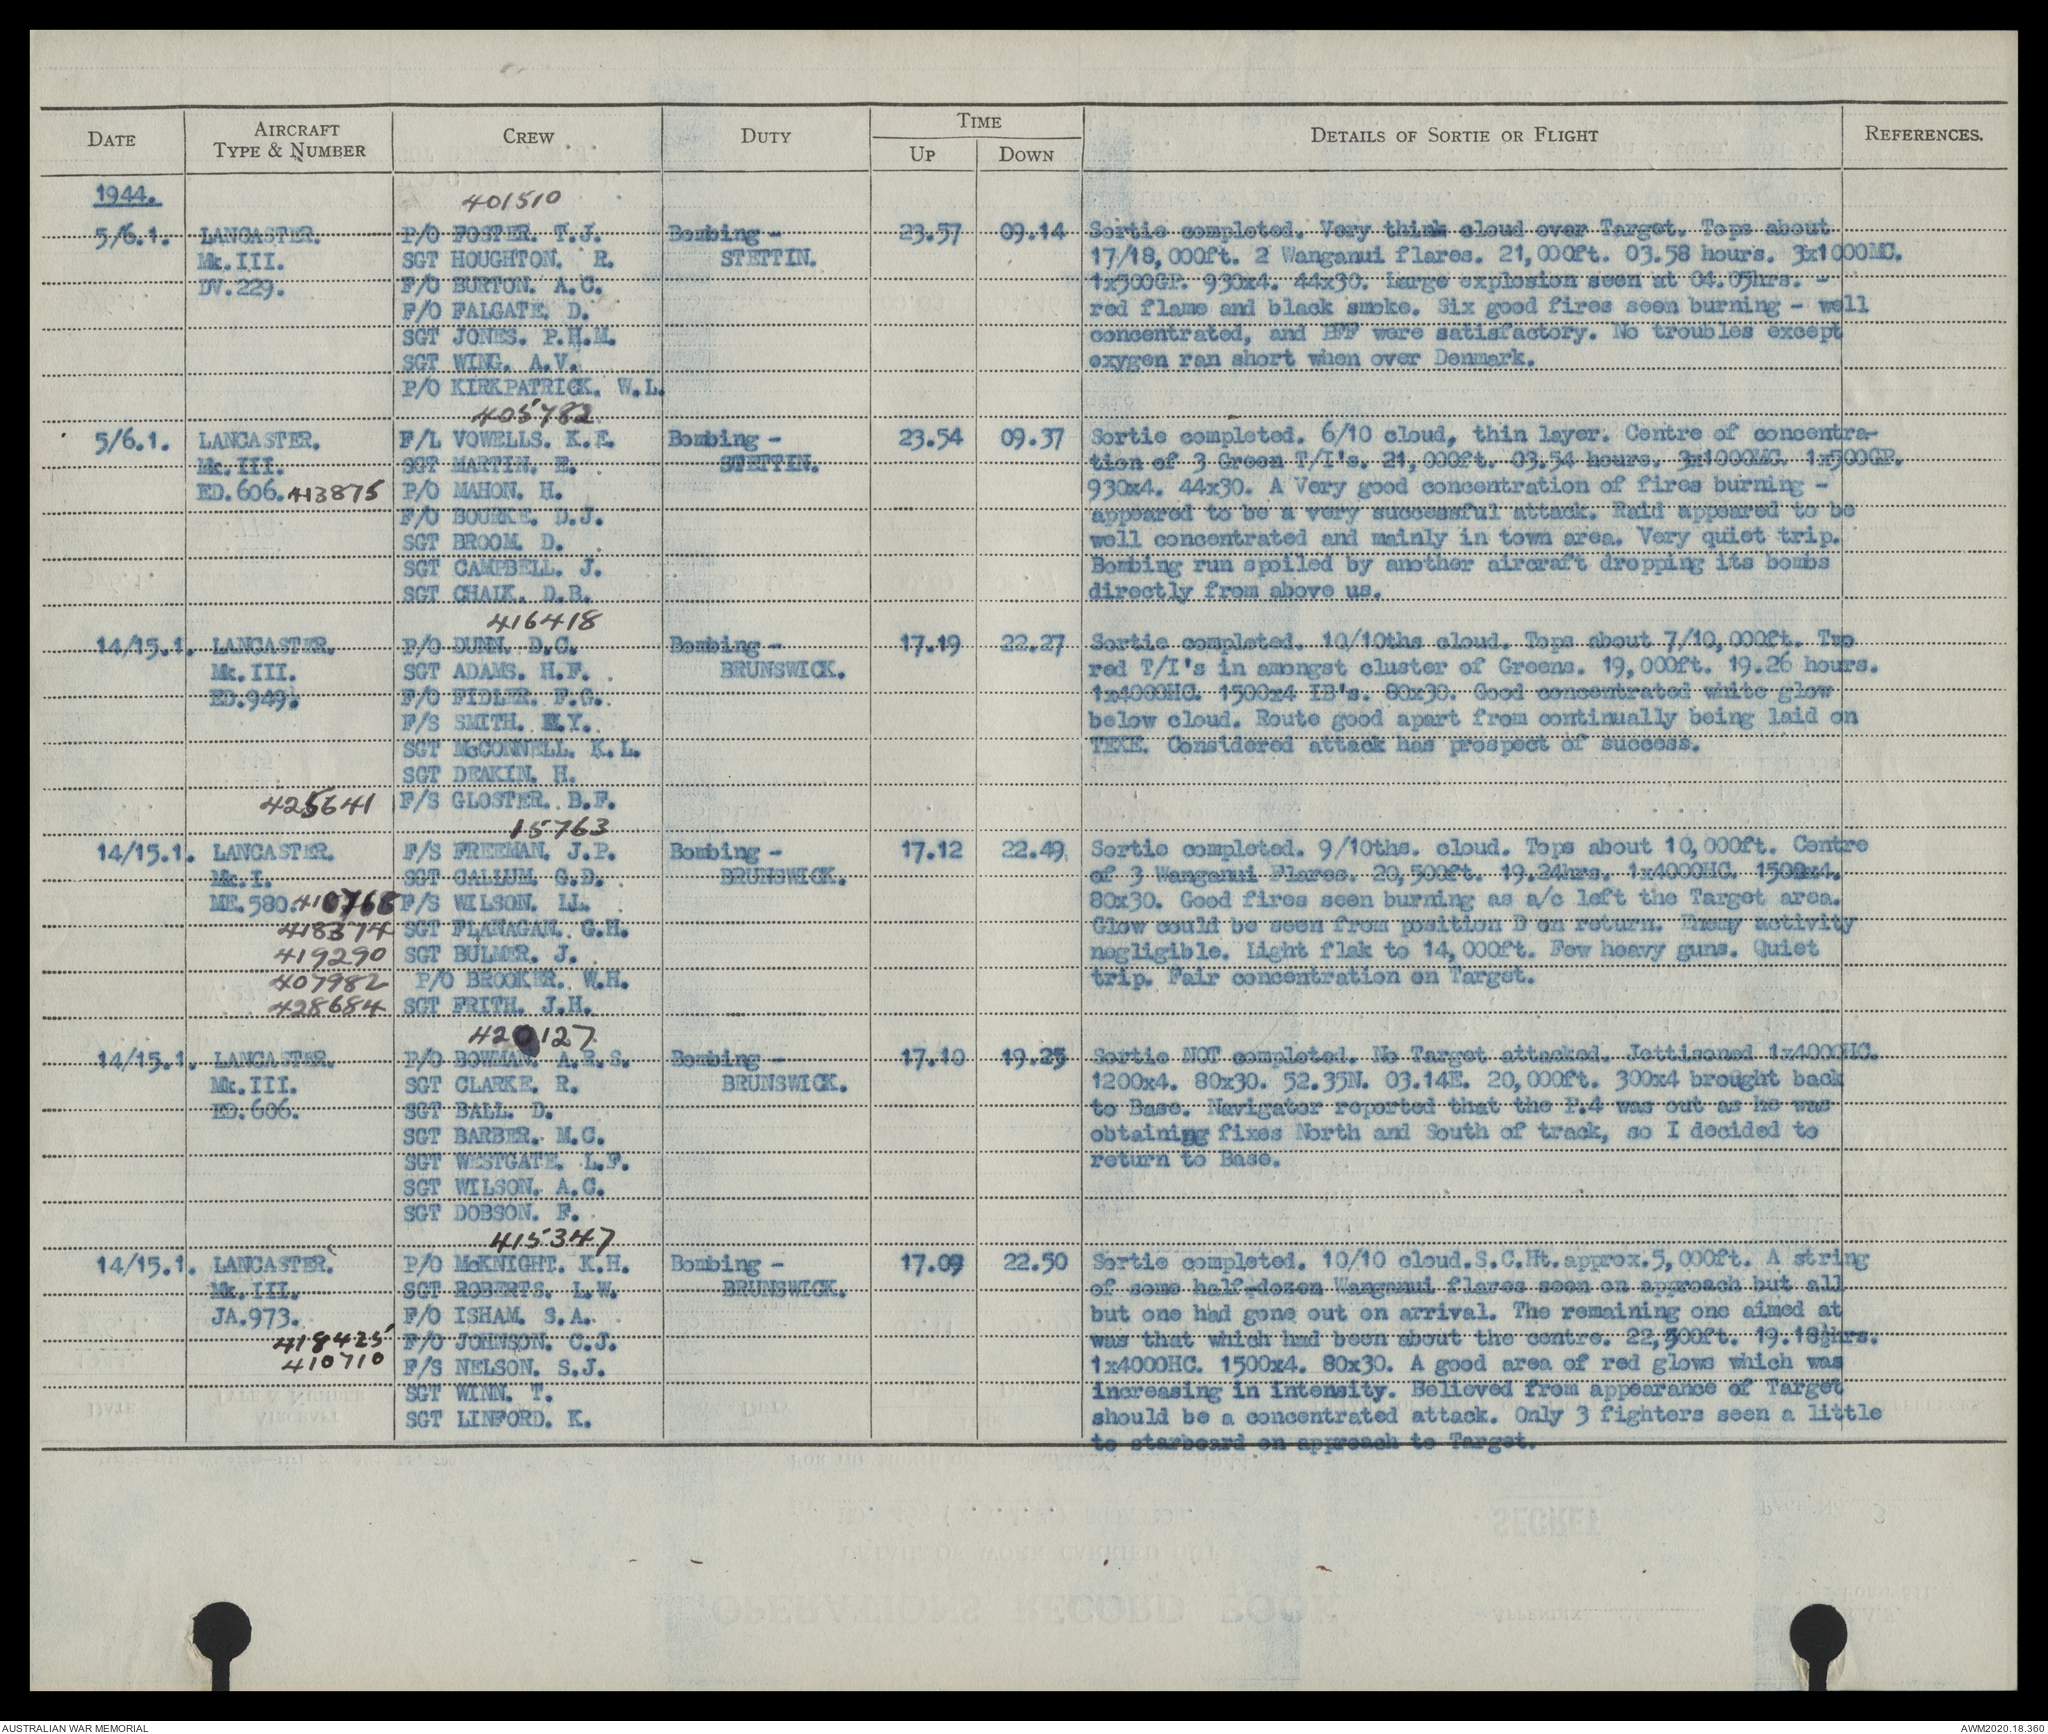 DATE AIRCRAFT TYPE & NUMBER CREW DUTY TIME UP DOWN DETAILS OF SORTIE OR FLIGHT REFERENCES.
1944.
401510
5/6.1. LANCASTER. P/O FOSTER. T.J. Bombing - 23.57 09.14 Sortie completed. Very think cloud over Target. Tops about
Mk.III. SGT HOUGHTON. R. STETTIN. 17/18,000ft. 2 Wanganui flares. 21,000ft. 03.58 hours. 3x1000MC.
DV.229. F/O BURTON. A.C. 1x500GP. 930x4. 44x30. Large explosion seen at 04.05hrs. -
F/O FALGATE. D. red flame and black smoke. Six good fires seen burning - well
SGT JONES. P.H.M. concentrated, and PFF were satisfactory. No troubles except
SGT WING. A.V. exygen ran short when over Denmark.
P/O KIRKPATRICK. W.L.
405782
5/6.1. LANCASTER. F/L VOWELLS. K.E. Bombing - 23.54 09.37 Sortie completed. 6/10 cloud, thin layer. Centre of concentra-
Mk.III. SGT MARTIN. E. STETTIN. tion of 3 Green T/I's. 21,000ft. 03.54 hours. 3x1000MC. 1x500GP.
ED.606. 413875 P/O MAHON. H. 930x4. 44x30. A Very good concentration of fires burning -
F/O BOURKE. D.J. appeared to be a very successful attack. Raid appeared to be
SGT BROOM. D. well concentrated and mainly in town area. Very quiet trip.
SGT CAMPBELL. J. Bombing run spoiled by another aircraft dropping its bombs
SGT CHAIK. D.B. directly from above us.
416418
14/15.1. LANCASTER. P/O DUNN. D.C. Bombing - 17.19 22.27 Sortie completed. 10/10ths cloud. Tops about 7/10,000ft. Two
Mk.III. SGT ADAMS. H.F. BRUNSWICK. red T/I's in amongst cluster of Greens. 19,000ft. 19.26 hours.
ED.949. F/O FIDLER. F.G. 1x4000HC. 1500x4 IB's. 80x30. Good concentrated white glow
F/S SMITH. E.Y. below cloud. Route good apart from continually being laid on
SGT McCONNELL. K.L. TEXE. Considered attack has prospect of success.
SGT DEAKIN. H.
425641 F/S GLOSTER. B.F.
15763
14/15.1. LANCASTER. F/S FREEMAN. J.P. Bombing - 17.12 22.49 Sortie completed. 9/10ths. cloud. Tops about 10,000ft. Centre
Mk.I. SGT CALLUM. G.D. BRUNSWICK. of 3 Wanganui Flares. 20,500ft. 19.24hrs. 1x4000HC. 1500x4.
ME.580. 410768 F/S WILSON. LL. 80x30. Good fires seen burning as a/c left the Target area.
418374 SGT FLANAGAN. G.H. Glow could be seen from position D on return. Enemy activity
419290 SGT BULMER. J. negligible. Light flak to 14,000ft. Few heavy guns. Quiet
407982 P/O BROOKER. W.H. trip. Fair concentration on Target.
428684 SGT FRITH. J.H.
420127
14/15.1. LANCASTER. P/O BOWMAN. A.R.S. Bombing - 17.10 19.25 Sortie NOT completed. No Target attacked. Jettisoned 1x4000HC.
Mk.III. SGT CLARKE. R. BRUNSWICK. 1200x4. 80x30. 52.35N. 03.14E. 20,000ft. 300x4 brought back
ED.606. SGT BALL. D. to Base. Navigator reported that the P.4 was out as he was
SGT BARBER. M.C. obtaining fixes North and South of track, so I decided to
SGT WESTGATE. L.F. return to Base.
SGT WILSON. A.C.
SGT DOBSON. F.
415347
14/15.1. LANCASTER. P/O McKNIGHT. K.H. Bombing - 17.09 22.50 Sortie completed. 10/10 cloud.S.C.Ht.approx.5,000ft. A string
Mk.III. SGT ROBERTS. L.W. BRUNSWICK. of some half-dozen Wanganui flares seen on approach but all
JA.973. F/O ISHAM. S.A. but one had gone out on arrival. The remaining one aimed at
418425 F/O JOHNSON. C.J. was that which had been about the centre. 22,500ft. 19.18½hrs.
410710 F/S NELSON. S.J. 1x4000HC. 1500x4. 80x30. A good area of red glows which was
SGT WINN. T. increasing in intensity. Believed from appearance of Target
SGT LINFORD. K. should be a concentrated attack. Only 3 fighters seen a little
to starboard on approach to Target.
AUSTRALIAN WAR MEMORIAL AWM2020.18.360